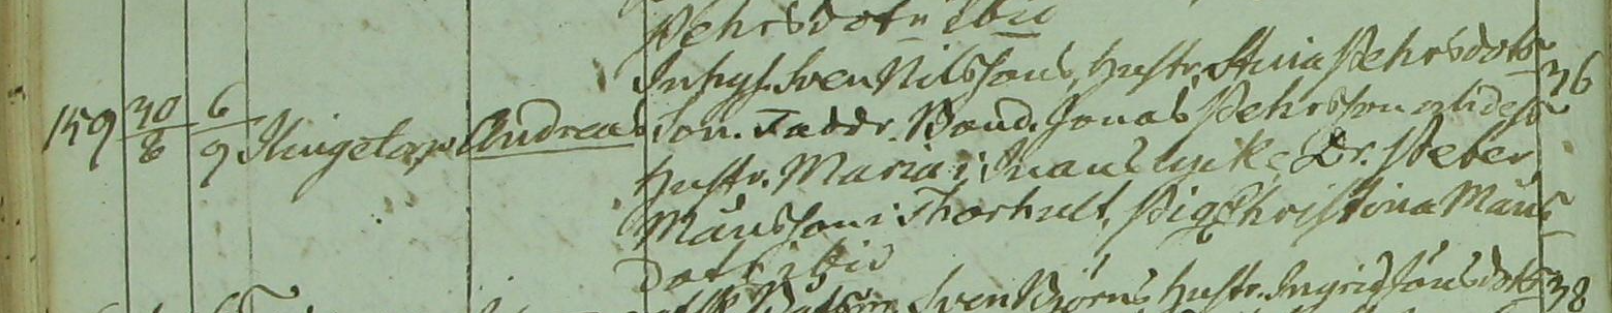 Pehrsdotr ibid
Inhys. Sven Nilssons, hustr. Stina Pehrsdotr 36
159 30/8 6/9 Klingetorp Andreas Son. Faddr. Bond. Jonas Pehrsson
hustr. Maria i Snauslycke Dr. Peter
Månsson i Thorhult, Pig. Christina Måns
dotr ibid
Sven Björns hustr. Ingrid Jönsdotr 38